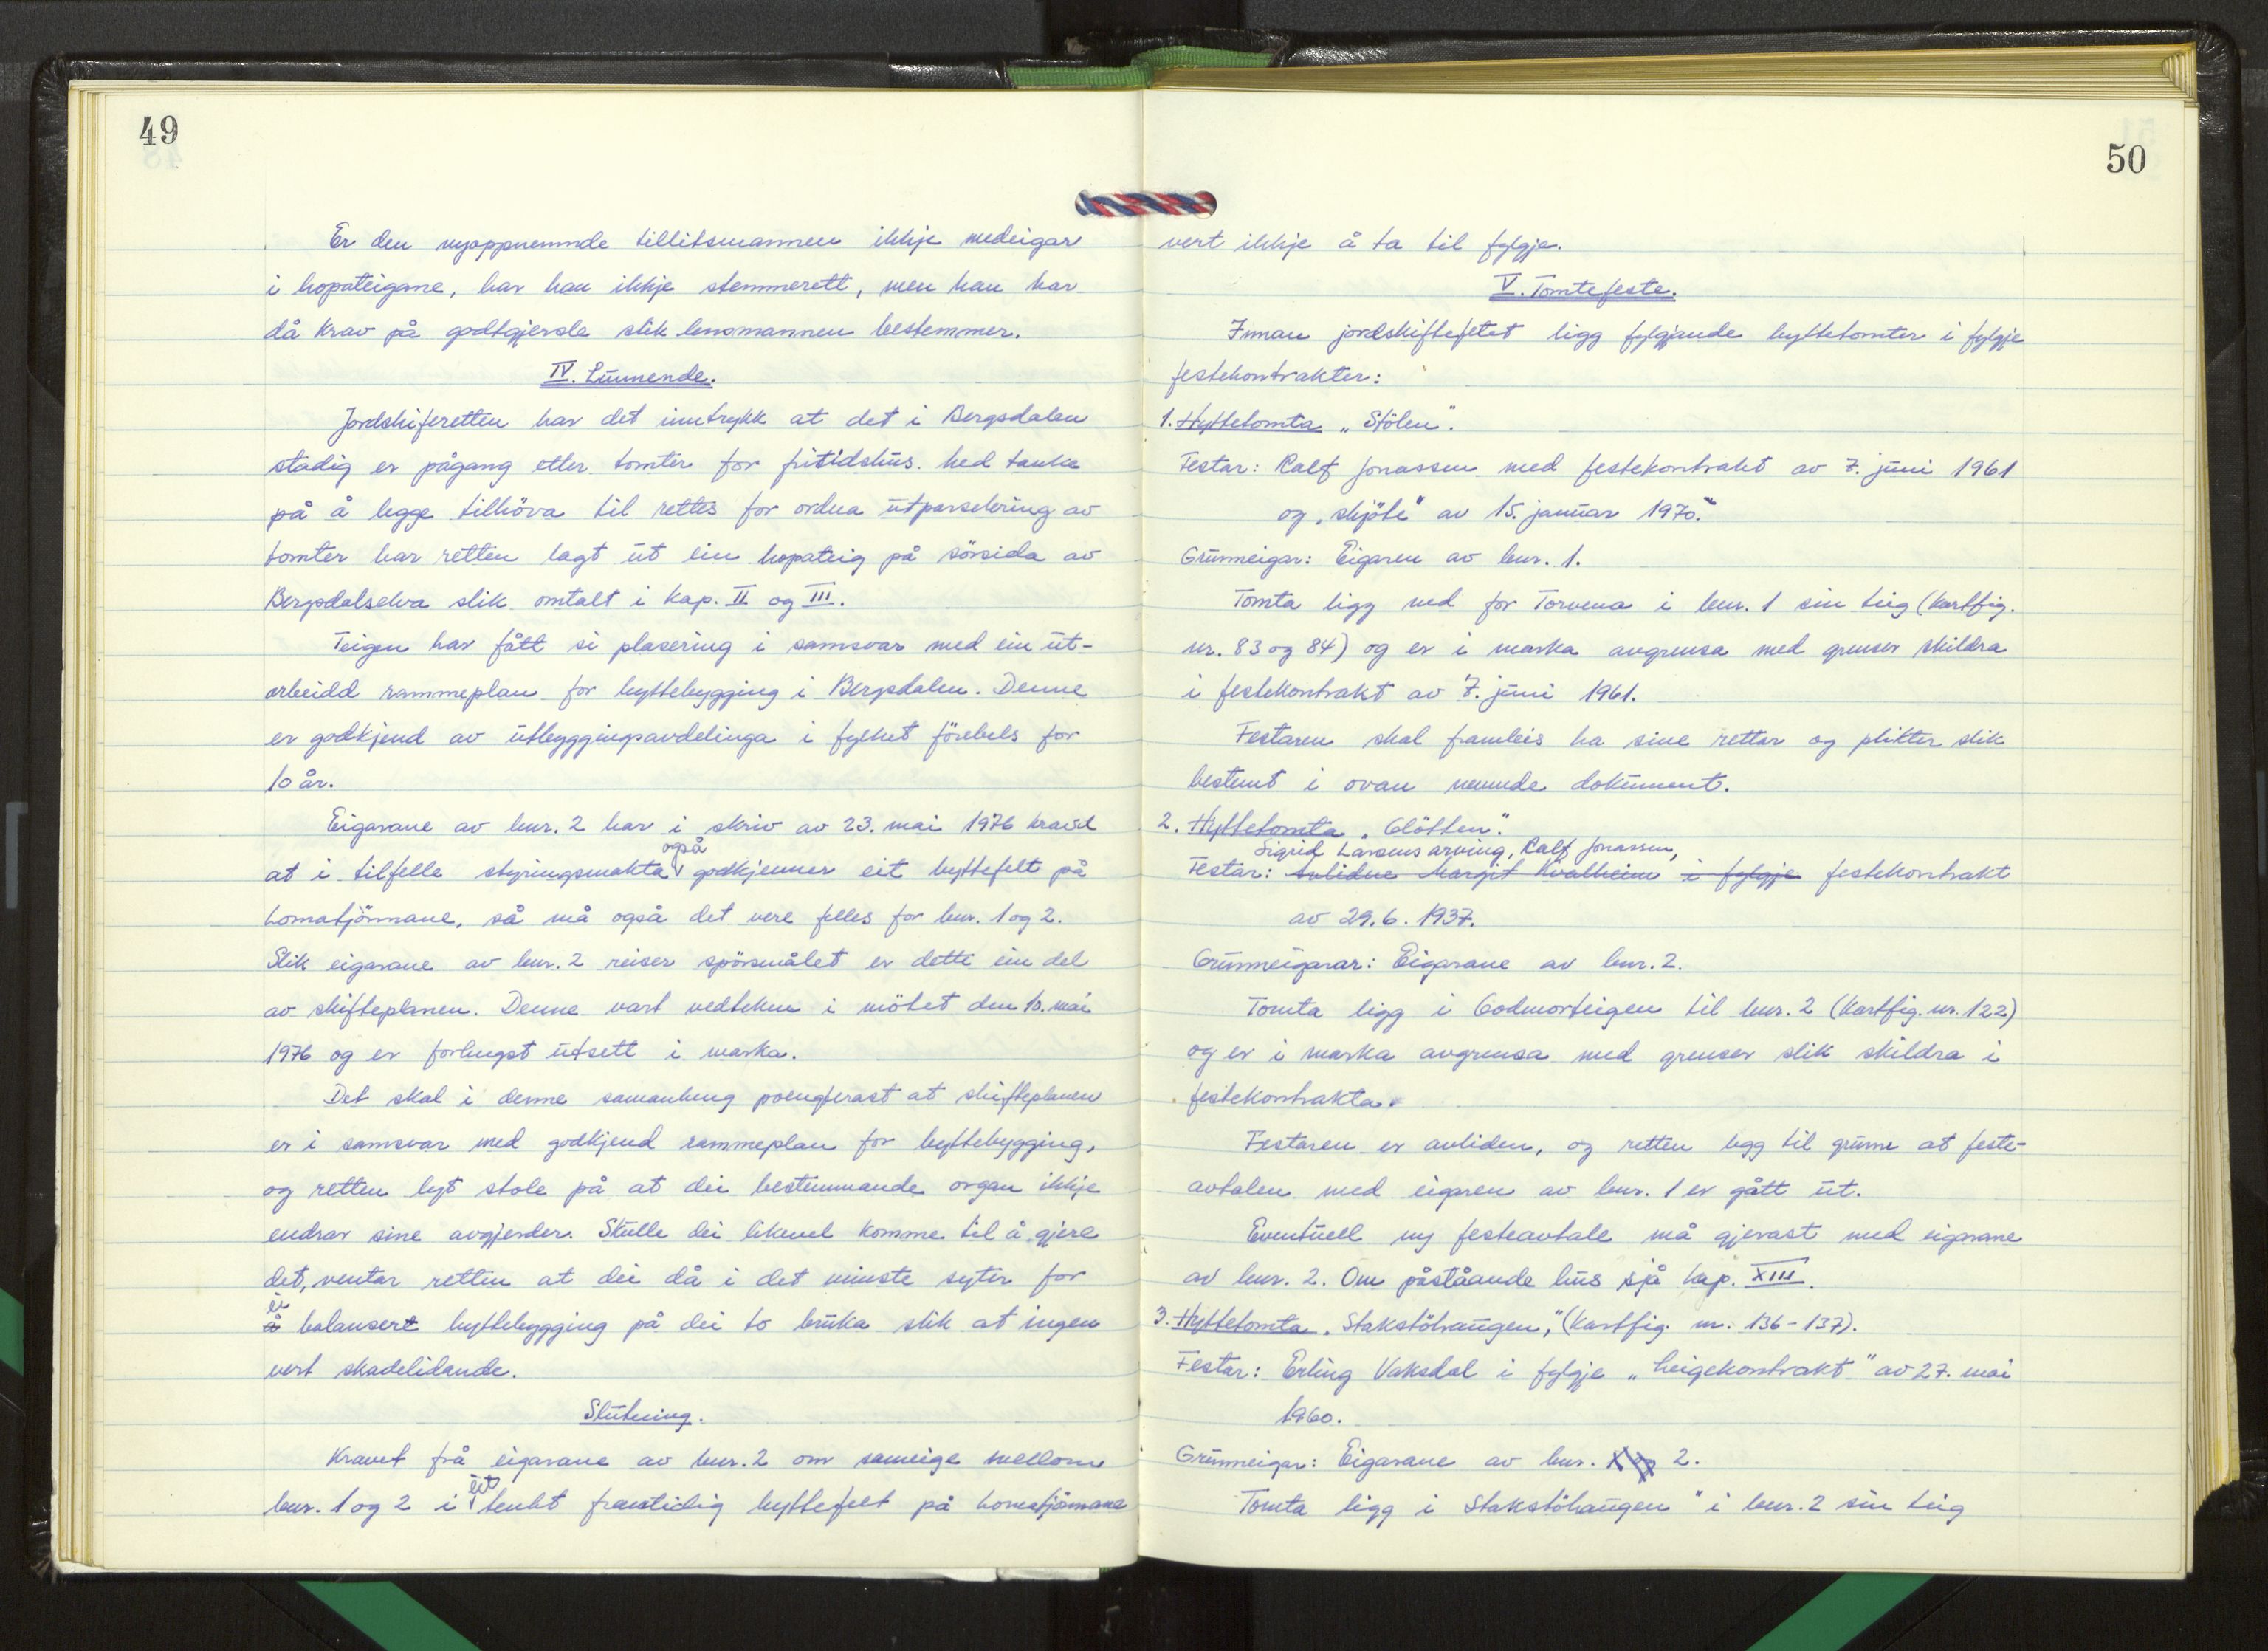 49
Er den nyoppnemnde tillitsmannen ikkje medeigar
i hopateigane, har han ikkje stemmerett, men han har
då krav på godtgjersle slik lensmannen bestemmer.
IV. Lunnende.
Jordskiferetten har det inntrykk at det i Bergsdalen
stadig er pågang etter tomter for fritidshus. Med tanke
på å legge tilhöva til rettes for ordna utparselering av
tomter har retten lagt ut ein hopateig på sörsida av
Bergsdalselva slik omtalt i kap. II og III.
Teigen har fått si plasering i samsvar med ein ut-
arbeidd rammeplan for hyttebygging i Bergsdalen. Denne
er godkjend av utbyggingsavdelinga i fylket förebels for
10 år.
Eigarane av bnr. 2 har i skriv av 23. mai 1976 kravd
at i tilfelle styringsmakta også godkjenner eit hyttefelt på
Lomatjönnane, så må også det vere felles for bnr. 1 og 2.
Slik eigarane av bnr. 2 reiser spörsmålet er dette ein del
av skifteplanen. Denne vart vedteken i mötet den 10. mai
1976 og er forlengst utsett i marka.
Det skal i denne samanheng poengterast at skifteplanen
er i samsvar med godkjend rammeplan for hyttebygging,
og retten lyt stole på at dei bestemmande organ ikkje
endrar sine avgjerder. Skulle dei likevel komme til å gjere
det, ventar retten at dei då i det minste syter for
ei balansert hyttebygging på dei to bruka slik at ingen
vert skadelidande.
Slutning.
Kravet frå eigarane av bnr. 2 om sameige mellom
bnr. 1 og 2 i eit tenkt framtidig hyttefelt på Lomatjönnane
50
vert ikkje å ta til fylgje.
V. Tomtefeste.
Innan jordskiftefeltet ligg fylgjande hyttetomter i fylgje
festekontrakter:
1. Hyttetomta „Stölen".
Festar: Ralf Jonassen med festekontrakt av 7. juni 1961
og „skjöte" av 15. januar 1970."
Grunneigar: Eigaren av bnr. 1.
Tomta ligg ned for Torvena i bnr. 1 sin teig (kartfig.
nr. 83 og 84) og er i marka avgrensa med grenser skildra
i festekontrakt av 7. juni 1961.
Festaren skal framleis ha sine rettar og plikter slik
bestemt i ovan nemnde dokument.
2. Hyttetomta „Glötten".
Sigrid Larsens arving, Ralf Jonassen,
Festar: Avlidne Margit Kvalheim i fylgje festekontrakt
av 29.6.1937.
Grunneigarar: Eigarane av bnr. 2.
Tomta ligg i Godmorteigen til bnr. 2 (kartfig. nr. 122)
og er i marka avgrensa med grenser slik skildra i
festekontrakta.
Festaren er avliden, og retten legg til grunn at feste-
avtalen med eigaren av bnr. 1 er gått ut.
Eventuell ny festeavtale må gjerast med eigarane
av bnr. 2. Om påståande hus sjå kap. XIII.
3. Hyttetomta „Stakstöhaugen", (kartfig. nr. 136-137).
Festar: Erling Vaksdal i fylgje „Leigekontrakt" av 27. mai
1960.
Grunneigar: Eigarane av bnr. 2.
Tomta ligg i Stakstöhaugen" i bnr. 2 sin teig